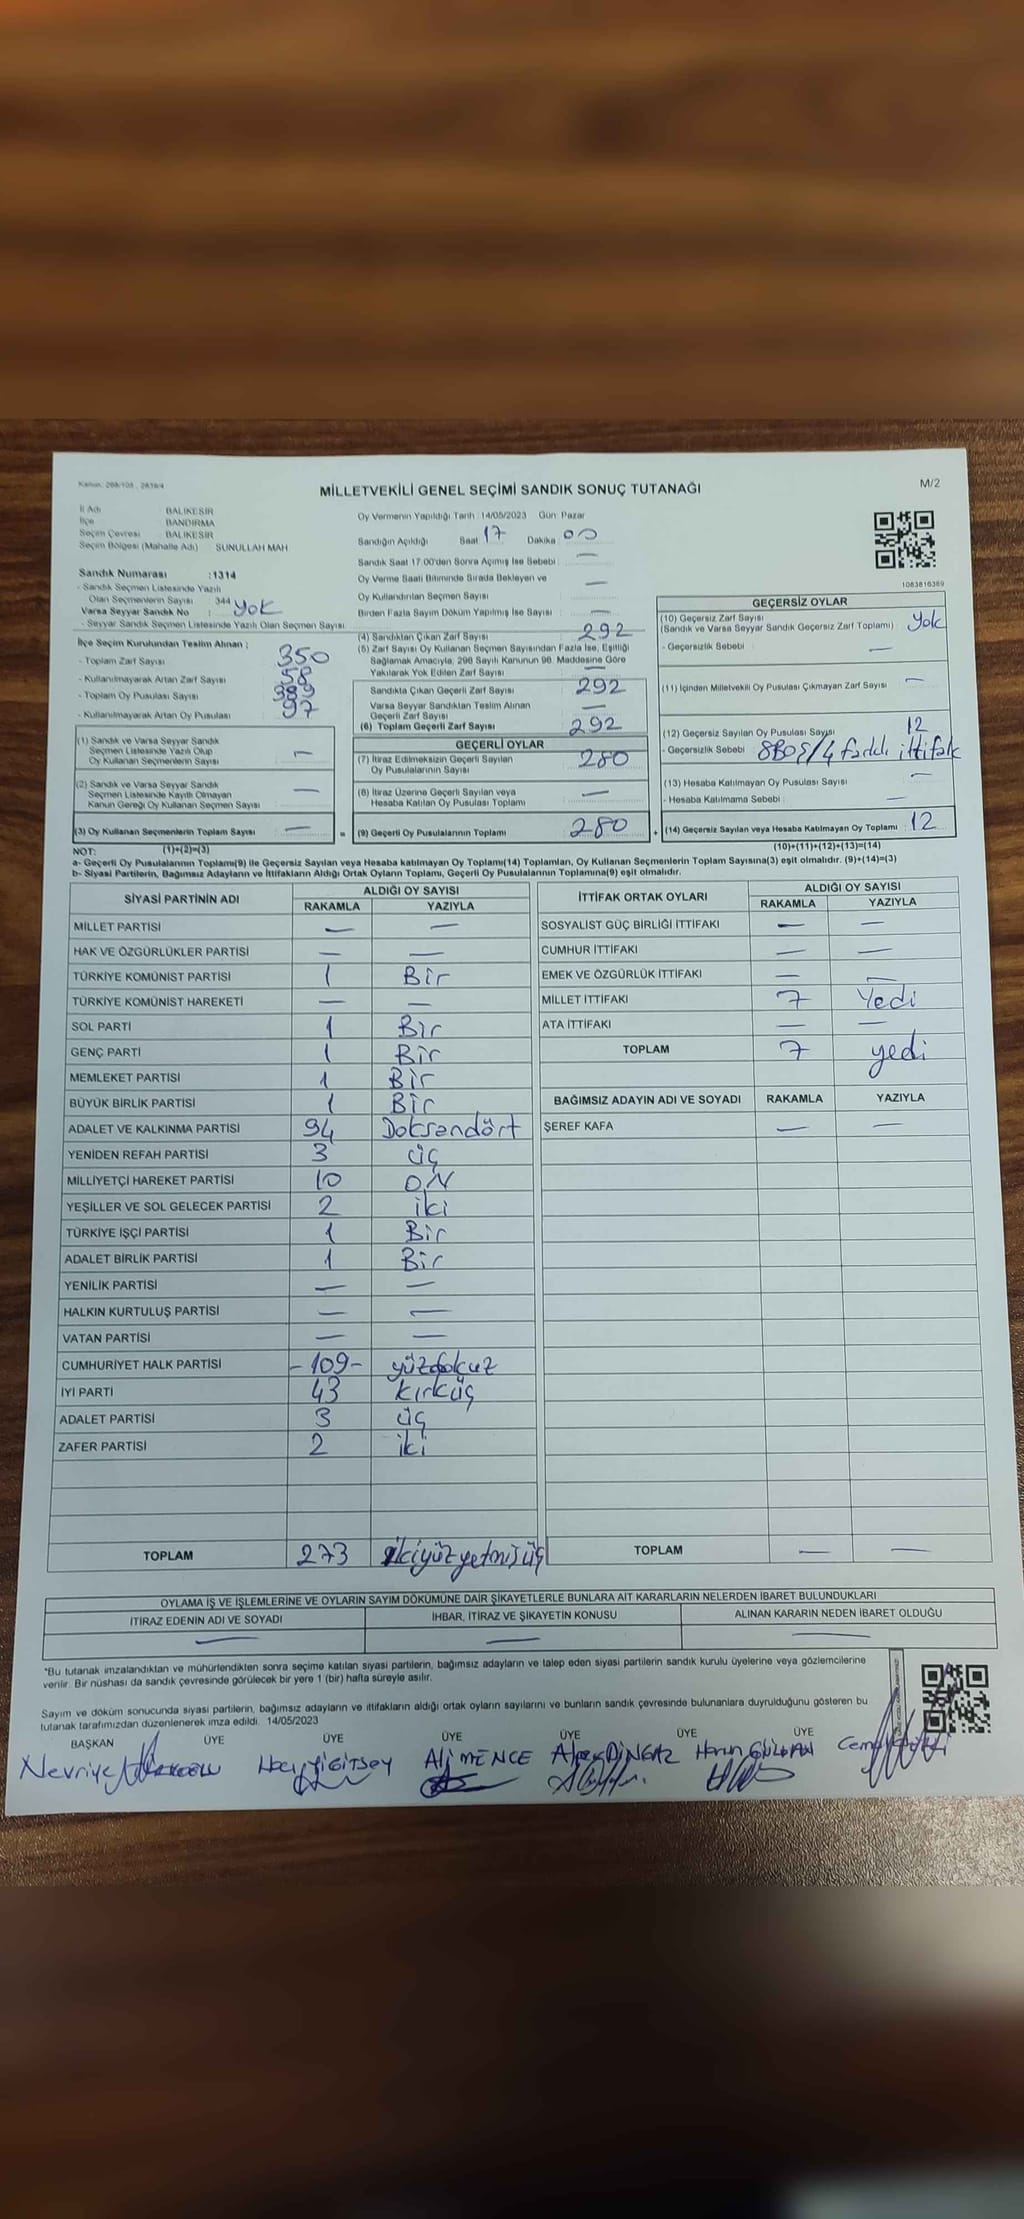 MİLLETVEKİLİ GENEL SEÇİMİ SANDIK SONUÇ TUTANAĞI
M/2
İl Adı : BALIKESİR
İlçe : BANDIRMA
Seçim Çevresi : BALIKESİR
Seçim Bölgesi (Mahalle Adı) SUNULLAH MAH
Sandık Numarası :1314
- Sandık Seçmen Listesinde Yazılı
Olan Seçmenlerin Sayısı : 344
Varsa Seyyar Sandık No : yok
- Seyyar Sandık Seçmen Listesinde Yazılı Olan Seçmen Sayısı
Oy Vermenin Yapıldığı Tarih :14/05/2023 Gün :Pazar
Sandığın Açıldığı Saat 17 Dakika 00
Sandık Saat 17.00'den Sonra Açımış İse Sebebi : —
Oy Verme Saati Bitiminde Sırada Bekleyen ve
Oy Kullandırılan Seçmen Sayısı —
Birden Fazla Sayım Döküm Yapılmış İse Sayısı : —
1083816369
İlçe Seçim Kurulundan Teslim Alınan :
- Toplam Zarf Sayısı 350
- Kullanılmayarak Artan Zarf Sayısı 58
- Toplam Oy Pusulası Sayısı 389
- Kullanılmayarak Artan Oy Pusulası 97
(1) Sandık ve Varsa Seyyar Sandık
Seçmen Listesinde Yazılı Olup
Oy Kullanan Seçmenlerin Sayısı —
(2) Sandık ve Varsa Seyyar Sandık
Seçmen Listesinde Kayıtlı Olmayan
Kanun Gereği Oy Kullanan Seçmen Sayısı —
(3) Oy Kullanan Seçmenlerin Toplam Sayısı —
(4) Sandıktan Çıkan Zarf Sayısı 292
(5) Zarf Sayısı Oy Kullanan Seçmen Sayısından Fazla İse, Eşitliği
Sağlamak Amacıyla, 298 Sayılı Kanunun 98. Maddesine Göre
Yakılarak Yok Edilen Zarf Sayısı —
Sandıkta Çıkan Geçerli Zarf Sayısı 292
Varsa Seyyar Sandıktan Teslim Alınan
Geçerli Zarf Sayısı —
(6) Toplam Geçerli Zarf Sayısı 292
GEÇERLİ OYLAR
(7) İtiraz Edilmeksizin Geçerli Sayılan
Oy Pusulalarının Sayısı 280
(8) İtiraz Üzerine Geçerli Sayılan veya
Hesaba Katılan Oy Pusulası Toplamı —
= (9) Geçerli Oy Pusulalarının Toplamı 280
GEÇERSİZ OYLAR
(10) Geçersiz Zarf Sayısı
(Sandık ve Varsa Seyyar Sandık Geçersiz Zarf Toplamı) yok
- Geçersizlik Sebebi —
(11) İçinden Milletvekili Oy Pusulası Çıkmayan Zarf Sayısı —
(12) Geçersiz Sayılan Oy Pusulası Sayısı 12
- Geçersizlik Sebebi : 8BOŞ/4 farklı ittifak
(13) Hesaba Katılmayan Oy Pusulası Sayısı —
- Hesaba Katılmama Sebebi : —
+ (14) Geçersiz Sayılan veya Hesaba Katılmayan Oy Toplamı : 12
NOT: (1)+(2)=(3)
(10)+(11)+(12)+(13)=(14)
a- Geçerli Oy Pusulalarının Toplamı(9) ile Geçersiz Sayılan veya Hesaba katılmayan Oy Toplamı(14) Toplamları, Oy Kullanan Seçmenlerin Toplam Sayısına(3) eşit olmalıdır. (9)+(14)=(3)
b- Siyasi Partilerin, Bağımsız Adayların ve İttifakların Aldığı Ortak Oyların Toplamı, Geçerli Oy Pusulalarının Toplamına(9) eşit olmalıdır.
SİYASİ PARTİNİN ADI ALDIĞI OY SAYISI
RAKAMLA YAZIYLA
MİLLET PARTİSİ — —
HAK VE ÖZGÜRLÜKLER PARTİSİ — —
TÜRKİYE KOMÜNİST PARTİSİ 1 Bir
TÜRKİYE KOMÜNİST HAREKETİ — —
SOL PARTİ 1 Bir
GENÇ PARTİ 1 Bir
MEMLEKET PARTİSİ 1 Bir
BÜYÜK BİRLİK PARTİSİ 1 Bir
ADALET VE KALKINMA PARTİSİ 94 Doksandört
YENİDEN REFAH PARTİSİ 3 üç
MİLLİYETÇİ HAREKET PARTİSİ 10 ON
YEŞİLLER VE SOL GELECEK PARTİSİ 2 iki
TÜRKİYE İŞÇİ PARTİSİ 1 Bir
ADALET BİRLİK PARTİSİ 1 Bir
YENİLİK PARTİSİ — —
HALKIN KURTULUŞ PARTİSİ — —
VATAN PARTİSİ — —
CUMHURİYET HALK PARTİSİ -109- yüzdokuz
İYİ PARTİ 43 kırküç
ADALET PARTİSİ 3 üç
ZAFER PARTİSİ 2 iki
TOPLAM 273 ikiyüzyetmişüç
İTTİFAK ORTAK OYLARI ALDIĞI OY SAYISI
RAKAMLA YAZIYLA
SOSYALİST GÜÇ BİRLİĞİ İTTİFAKI — —
CUMHUR İTTİFAKI — —
EMEK VE ÖZGÜRLÜK İTTİFAKI — —
MİLLET İTTİFAKI 7 Yedi
ATA İTTİFAKI — —
TOPLAM 7 yedi
BAĞIMSIZ ADAYIN ADI VE SOYADI RAKAMLA YAZIYLA
ŞEREF KAFA — —
TOPLAM — —
OYLAMA İŞ VE İŞLEMLERİNE VE OYLARIN SAYIM DÖKÜMÜNE DAİR ŞİKAYETLERLE BUNLARA AİT KARARLARIN NELERDEN İBARET BULUNDUKLARI
İTİRAZ EDENİN ADI VE SOYADI İHBAR, İTİRAZ VE ŞİKAYETİN KONUSU ALINAN KARARIN NEDEN İBARET OLDUĞU
— — —
*Bu tutanak imzalandıktan ve mühürlendikten sonra seçime katılan siyasi partilerin, bağımsız adayların ve talep eden siyasi partilerin sandık kurulu üyelerine veya gözlemcilerine
verilir. Bir nüshası da sandık çevresinde görülecek bir yere 1 (bir) hafta süreyle asılır.
Sayım ve döküm sonucunda siyasi partilerin, bağımsız adayların ve ittifakların aldığı ortak oyların sayılarını ve bunların sandık çevresinde bulunanlara duyrulduğunu gösteren bu
tutanak tarafımızdan düzenlenerek imza edildi. 14/05/2023
BAŞKAN ÜYE ÜYE ÜYE ÜYE ÜYE ÜYE
Nevriye YİĞİTSOY Ali MENCE Harun Cem